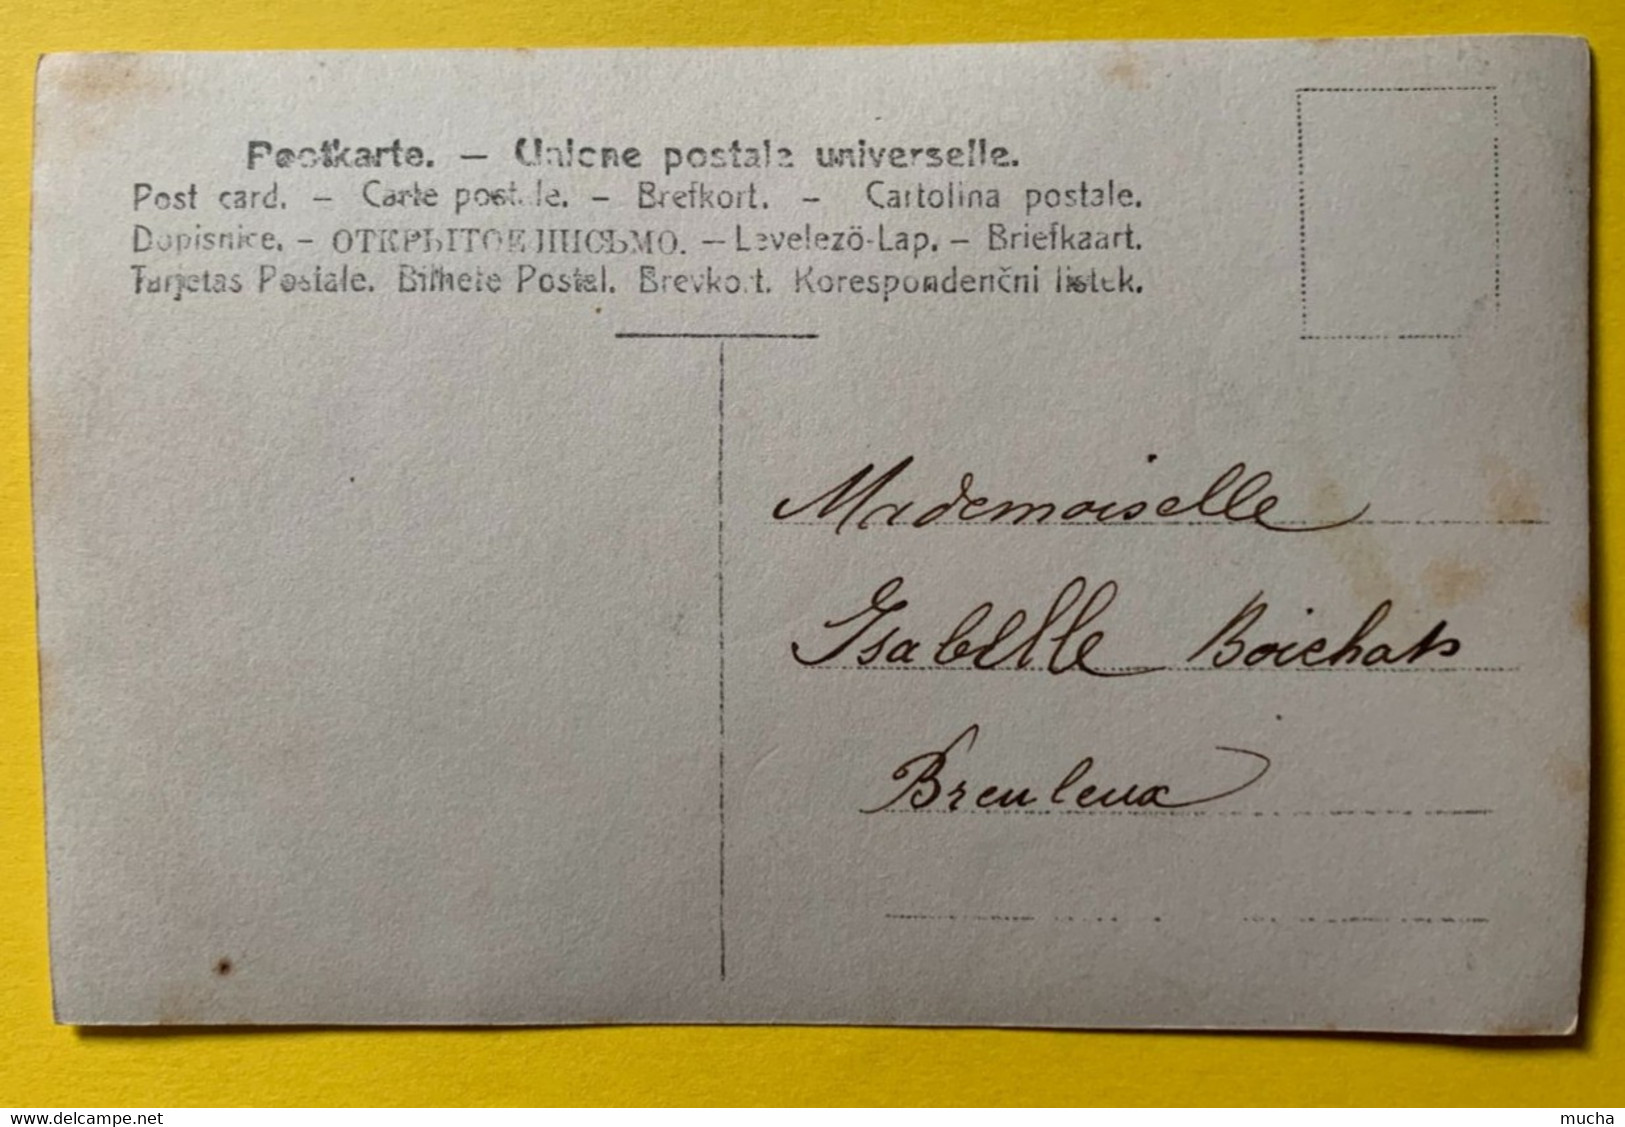 Postkarte. – Unione postale universelle.
Post card. – Carte postale. – Brefkort. – Cartolina postale.
Dopisnice. – ОТКРЫТОЕ ПИСЬМО. – Levelezö-Lap. – Briefkaart.
Tarjetas Postale. Bilhete Postal. Brevkort. Korespondenčni listek.
Mademoiselle
Isabelle Boichat
Breuleux
delcampe.net
mucha